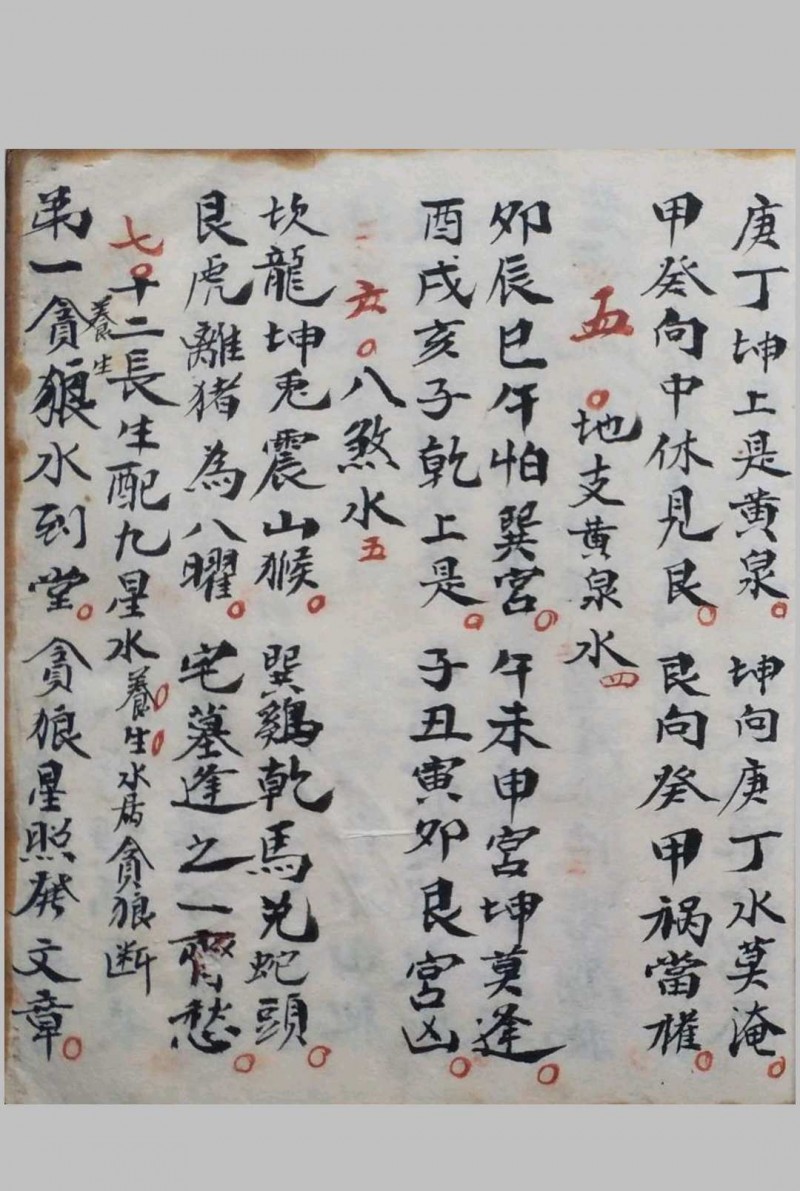 庚丁坤上是黄泉。坤向庚丁水莫淹。
甲癸向中休見艮。艮向癸甲祸當權。
五。地支黄泉水四
卯辰巳午怕巽宮。午未申宮坤莫逢。
酉戌亥子乾上是。子丑寅卯艮宮凶。
六。八煞水五
坎龍坤兎震山猴。巽鷄乾馬兑蛇頭。
艮虎離猪為八曜。宅墓逢之一齊愁。
七。十二長生配九星水養。生。水為貪狼断
養生
苐一貪狼水到堂。貪狼星照發文章。